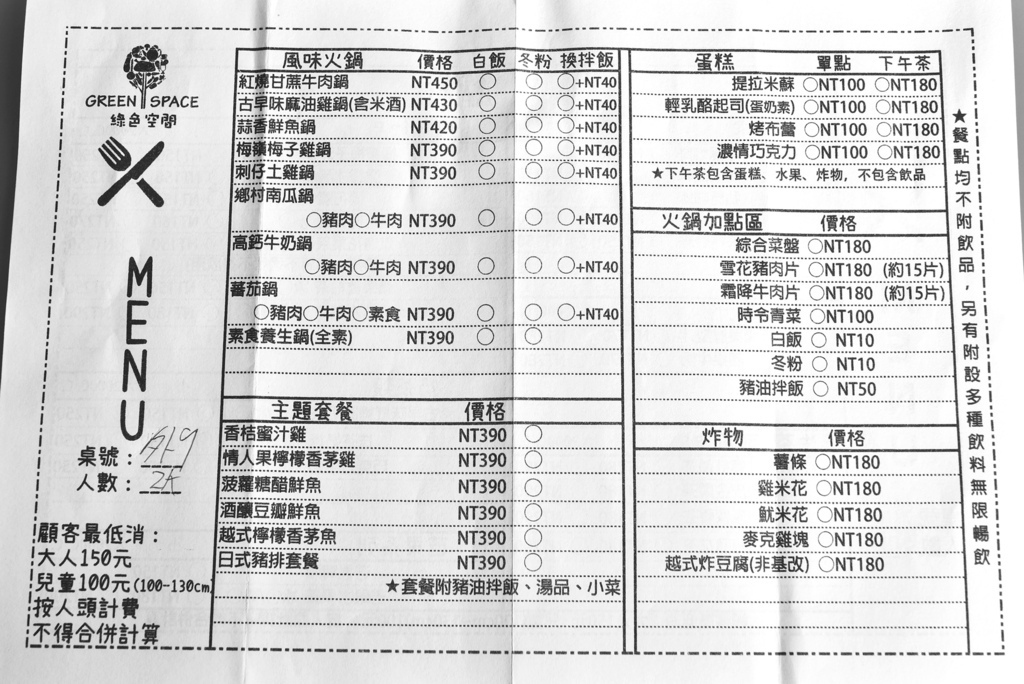 GREEN SPACE
綠色空間
MENU
桌號：外9
人數：2大
顧客最低消：
大人150元
兒童100元(100-130cm)
按人頭計費
不得合併計算
風味火鍋 價格 白飯 冬粉 換拌飯
紅燒甘蔗牛肉鍋 NT450 ○ ○ ○+NT40
古早味麻油雞鍋(含米酒) NT430 ○ ○ ○+NT40
蒜香鮮魚鍋 NT420 ○ ○ ○+NT40
梅嶺梅子雞鍋 NT390 ○ ○ ○+NT40
刺仔土雞鍋 NT390 ○ ○ ○+NT40
鄉村南瓜鍋
○豬肉○牛肉 NT390 ○ ○ ○+NT40
高鈣牛奶鍋
○豬肉○牛肉 NT390 ○ ○ ○+NT40
蕃茄鍋
○豬肉○牛肉○素食 NT390 ○ ○ ○+NT40
素食養生鍋(全素) NT390 ○ ○
主題套餐 價格
香桔蜜汁雞 NT390 ○
情人果檸檬香茅雞 NT390 ○
菠蘿糖醋鮮魚 NT390 ○
酒釀豆瓣鮮魚 NT390 ○
越式檸檬香茅魚 NT390 ○
日式豬排套餐 NT390 ○
★套餐附豬油拌飯、湯品、小菜
蛋糕 單點 下午茶
提拉米蘇 ○NT100 ○NT180
輕乳酪起司(蛋奶素) ○NT100 ○NT180
烤布蕾 ○NT100 ○NT180
濃情巧克力 ○NT100 ○NT180
★下午茶包含蛋糕、水果、炸物，不包含飲品
火鍋加點區 價格
綜合菜盤 ○NT180
雪花豬肉片 ○NT180 (約15片)
霜降牛肉片 ○NT180 (約15片)
時令青菜 ○NT100
白飯 ○ NT10
冬粉 ○ NT10
豬油拌飯 ○ NT50
炸物 價格
薯條 ○NT180
雞米花 ○NT180
魷米花 ○NT180
麥克雞塊 ○NT180
越式炸豆腐(非基改) ○NT180
★餐點均不附飲品，另有附設多種飲料無限暢飲